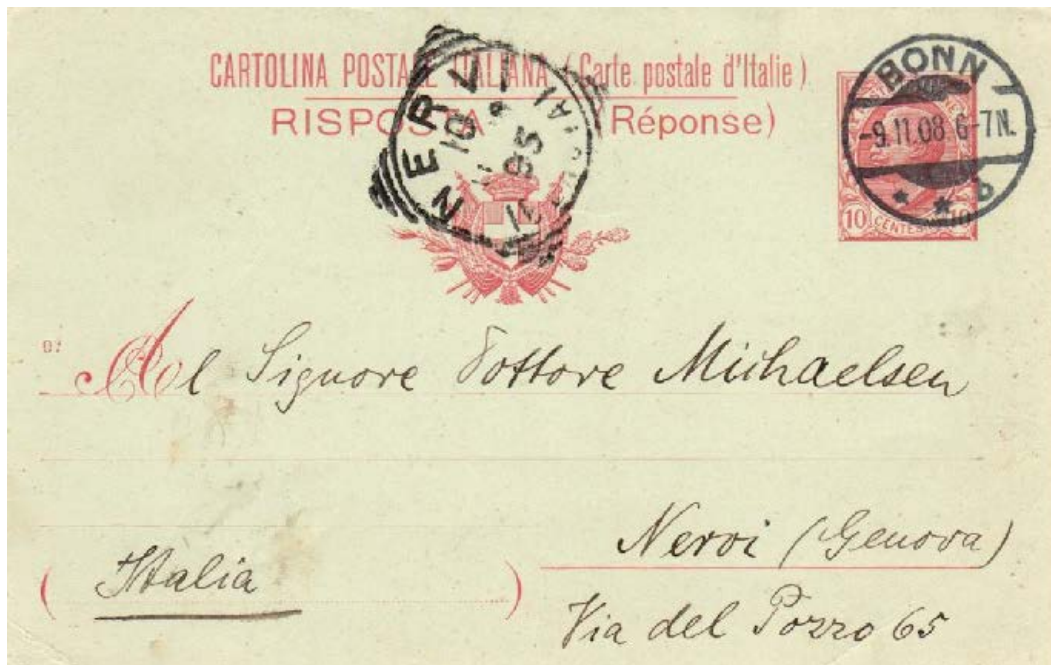 CARTOLINA POSTALE ITALIANA (Carte postale d'Italie)
RISPOSTA (Réponse)
BONN
-9.11.08 6-7N.
* * b
10 CENTESIMI 10
NERVI
10
Al Signore Dottore Michaelsen
Nervi (Genova)
(Italia)
Via del Pozzo 65